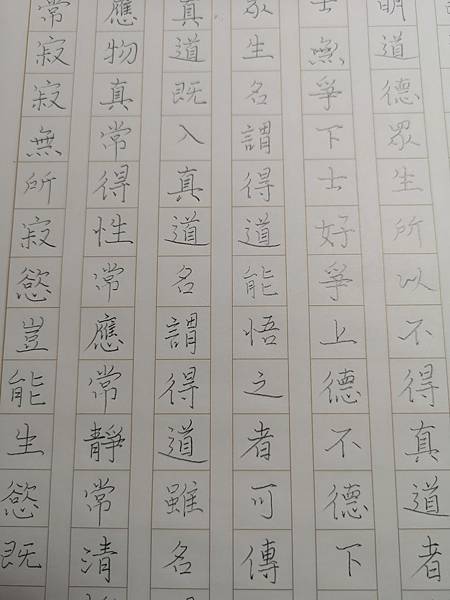 明道德眾生所以不得真道者
士無爭下士好爭上德不德下
眾生名謂得道能悟之者可傳
真道既入真道名謂得道雖名
應物真常得性常應常靜常清
常寂寂無所寂慾豈能生慾既